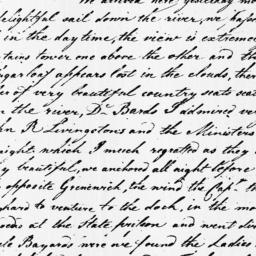 We arrived here yesterday mo
delightful sail down the river, we passe
in the daytime, the view is extreme
tains tower one above the other and th
sugarloaf appears lost in the clouds, ther
es of very beautiful country seats seat
n the river, Dr Bards I admired ver
hn R Livingstons and the Ministers
night which I much regretted as they a
y beautiful, we anchored all night before
opposite Greenwich, the wind the Capt. th
hard to venture to the dock, in the mo
at the State prison and went dire
Bayards were we found the Ladies